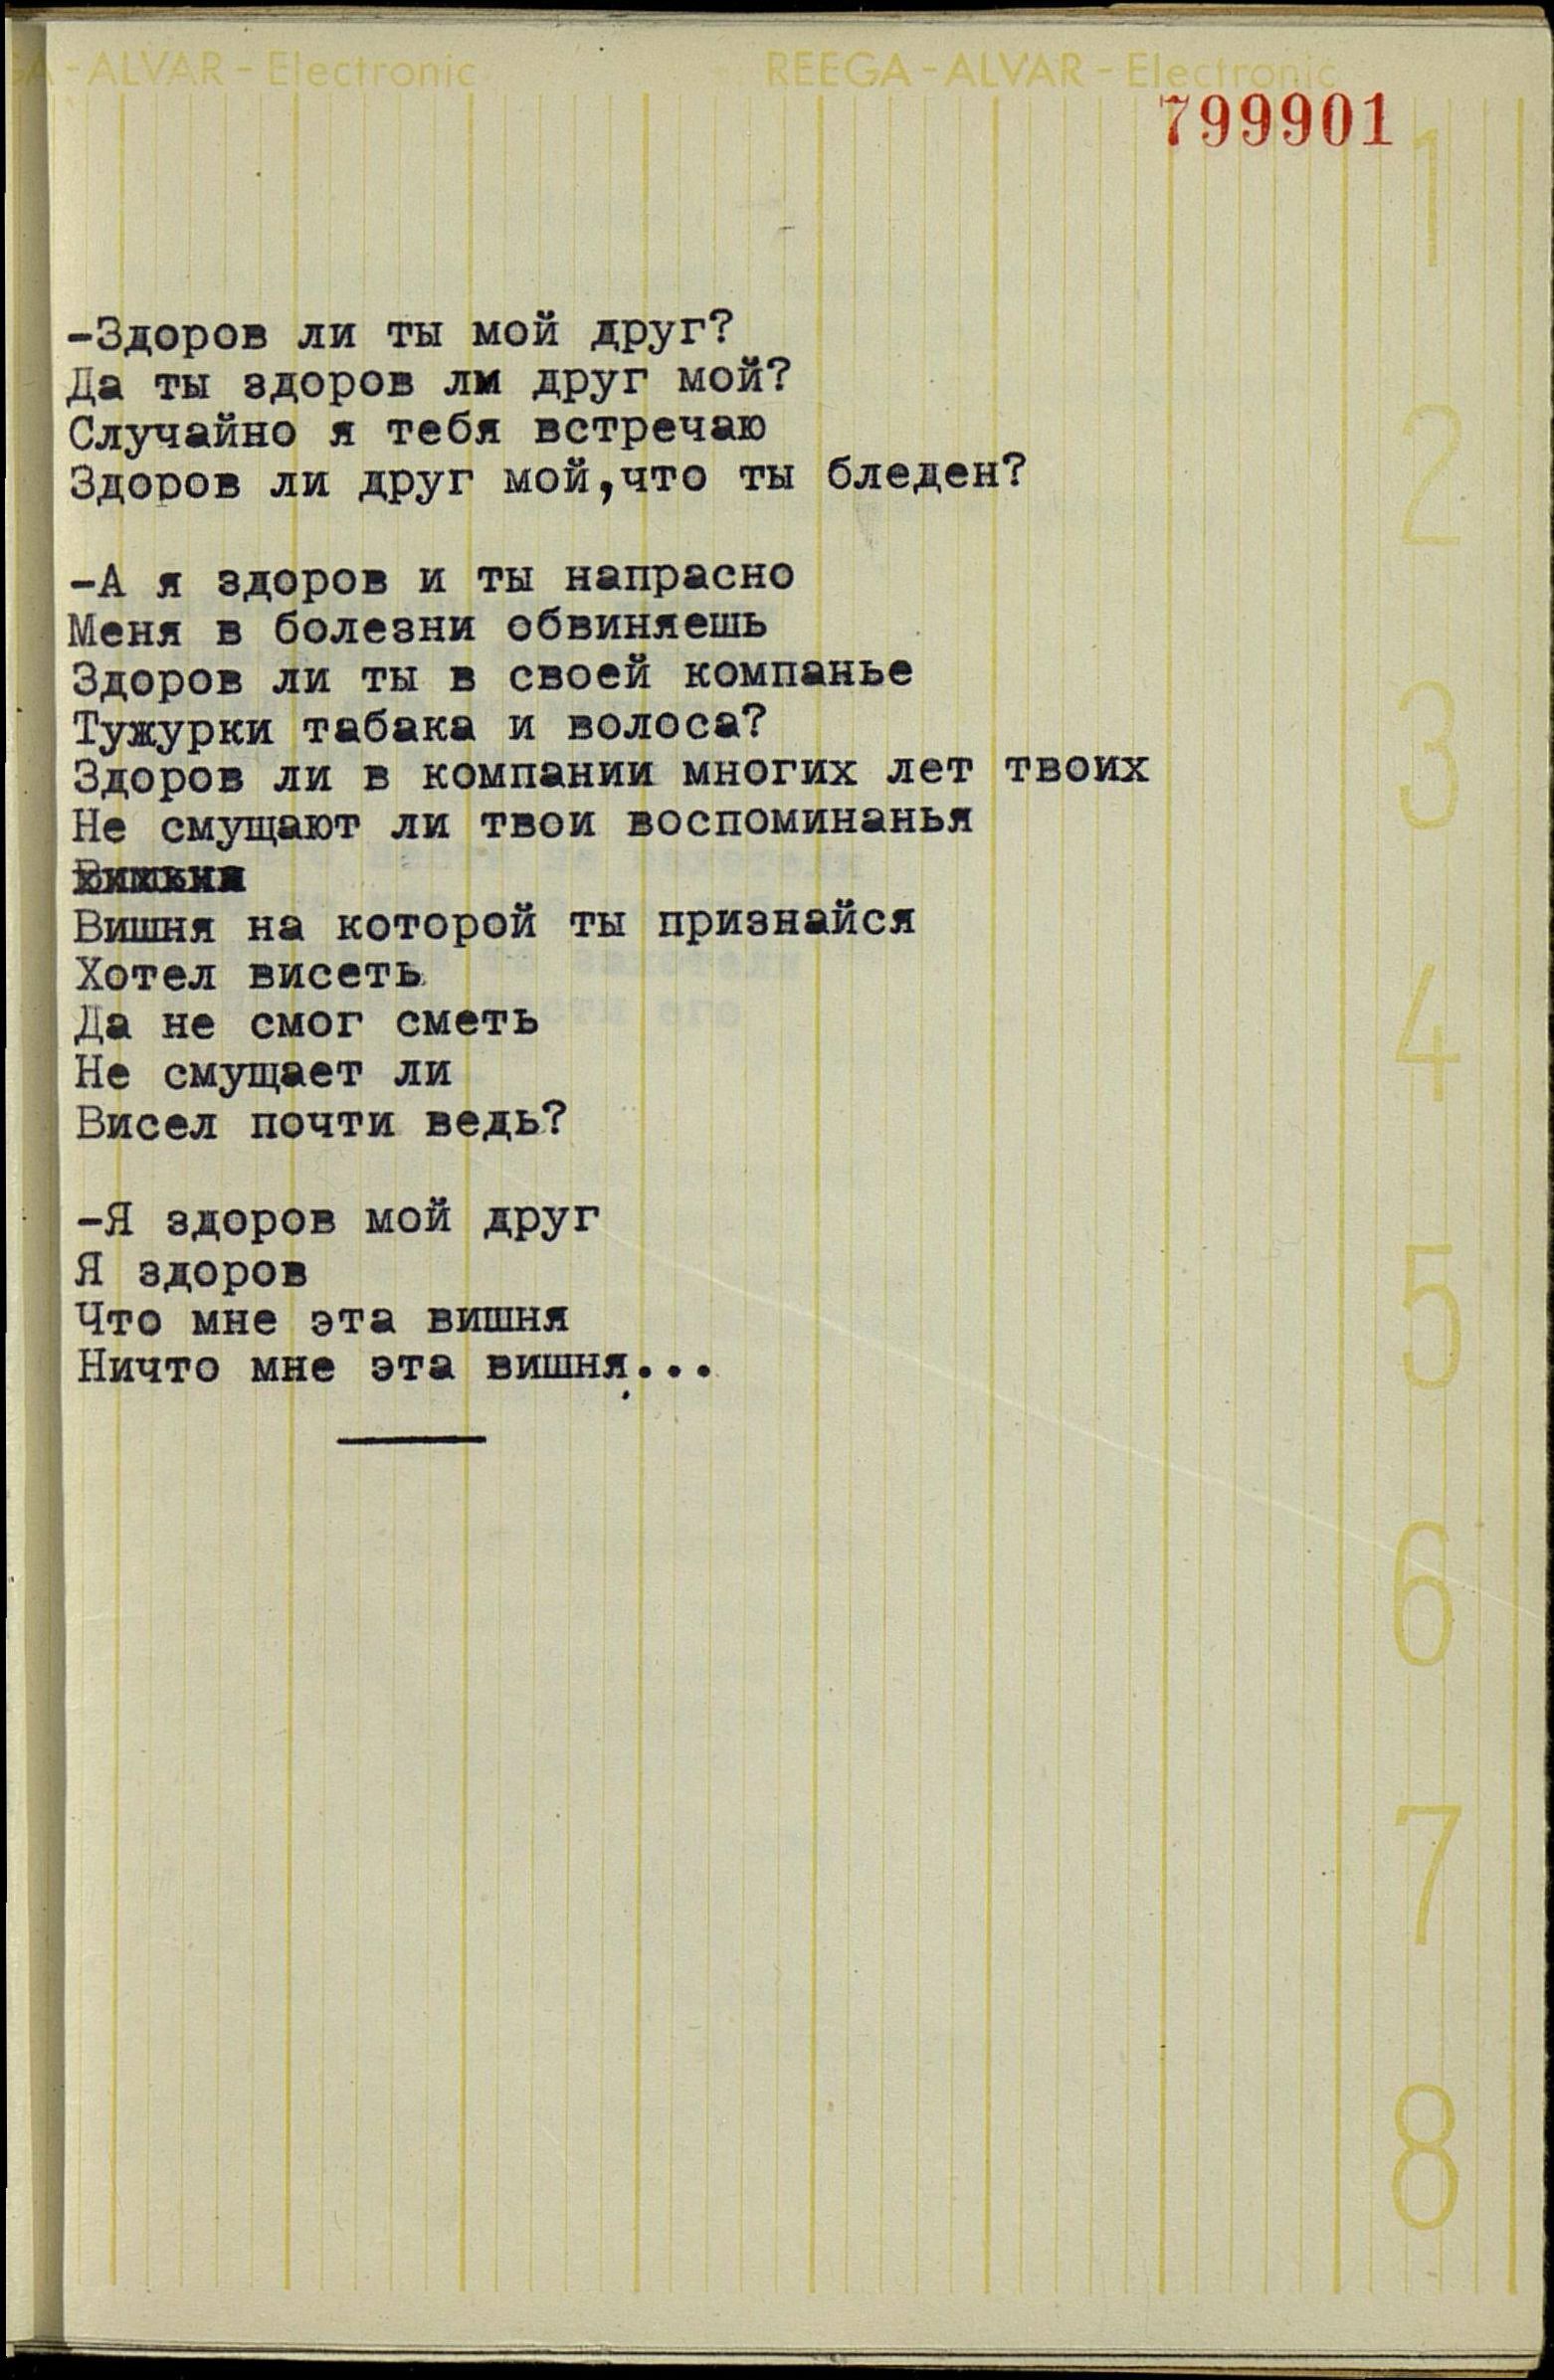 -ALVAR-Electronic REEGA-ALVAR-Electronic
799901
1
-Здоров ли ты мой друг?
Да ты здоров ли друг мой?
Случайно я тебя встречаю
2
Здоров ли друг мой,что ты бледен?
-А я здоров и ты напрасно
Меня в болезни обвиняешь
Здоров ли ты в своей компанье
Тужурки табака и волоса?
3
Здоров ли в компании многих лет твоих
Не смущают ли твои воспоминанья
Вишня на которой ты признайся
Хотел висеть
Да не смог сметь
4
Не смущает ли
Висел почти ведь?
-Я здоров мой друг
Я здоров
Что мне эта вишня
5
Ничто мне эта вишня...
6
7
8